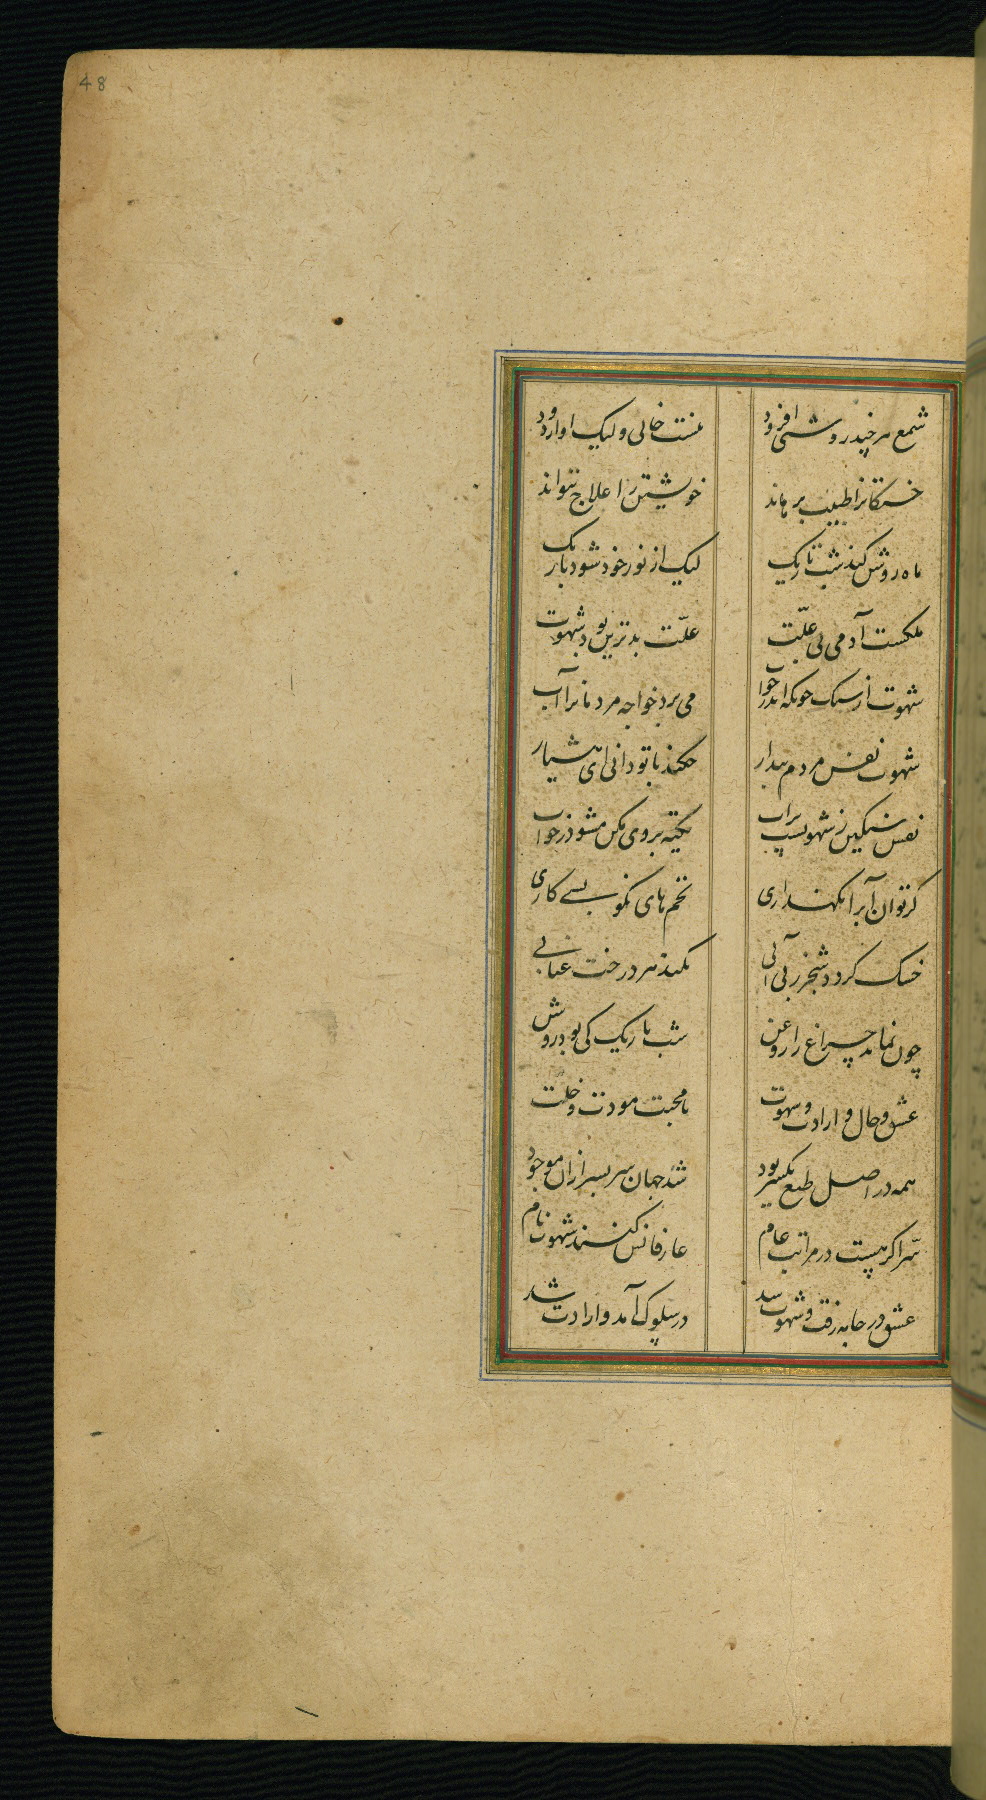 48
شمع هر چند روشنی افزود
نیست خالی ولیک او از دود
خستکانرا طبیب برهاند
خویشتن را علاج نتواند
ماه روشن کند شب تاریک
لیک از نور خود شود باریک
ملکست آدمی بی علّت
علّت بدترین بود شهوت
شهوت از سک چونکه اندر خواب
می برد خواجه مردمانرا آب
شهوت نفس مردم بیدار
چکند با تو دانی ای هشیار
نفس سنکین ز شهوتست بر آب
تکیه بر وی مکن مشو در خواب
کر توان آبرا نکهداری
تخمهای نکو بسی کاری
خشک کردد شجر ز بی آبی
نکند هر درخت عنابی
چون نماند چراغ را روغن
شب تاریک کی بود روشن
عشق و حال و ارادت و شهوت
با محبت مودت و خلت
همه در اصل طبع یکسر بود
شد جهان سر بسر از ان موجود
سّر اکر هست در مراتب عام
عارفانش کنند شهوت نام
عشق در جابه رفت و شهوت شد
در سلوک آمد و ارادت شد